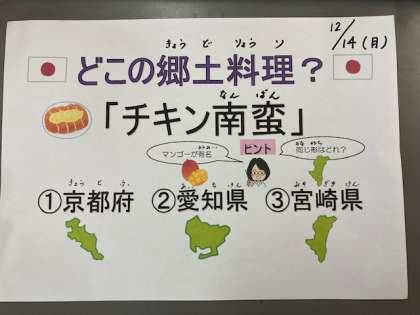 12/14(月)
きょうどりょうり
どこの郷土料理?
なんばん
「チキン南蛮」
マンゴーが有名
ヒント
同じ形はどれ?
きょうとふ
あいちけん
みやざきけん
①京都府 ②愛知県 ③宮崎県